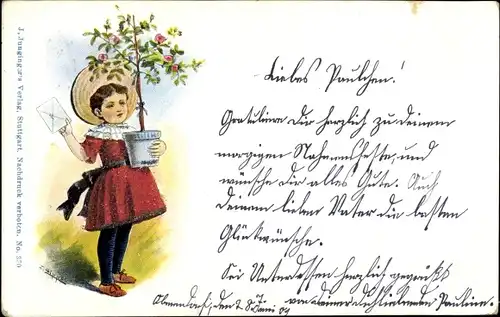 J. Junginger's Verlag, Stuttgart. Nachdruck verboten. No. 320
Liebes Paulchen!
Gratuliere Dir herzlich zu deinem
morgigen Nahmensfeste, und
wünsche dir alles Gute. Auch
deinem lieben Vater die besten
Glückwünsche.
Sei Unterdessen herzlich gegrüßt
von deiner dich liebenden Pauline.
den 28 Juni 04